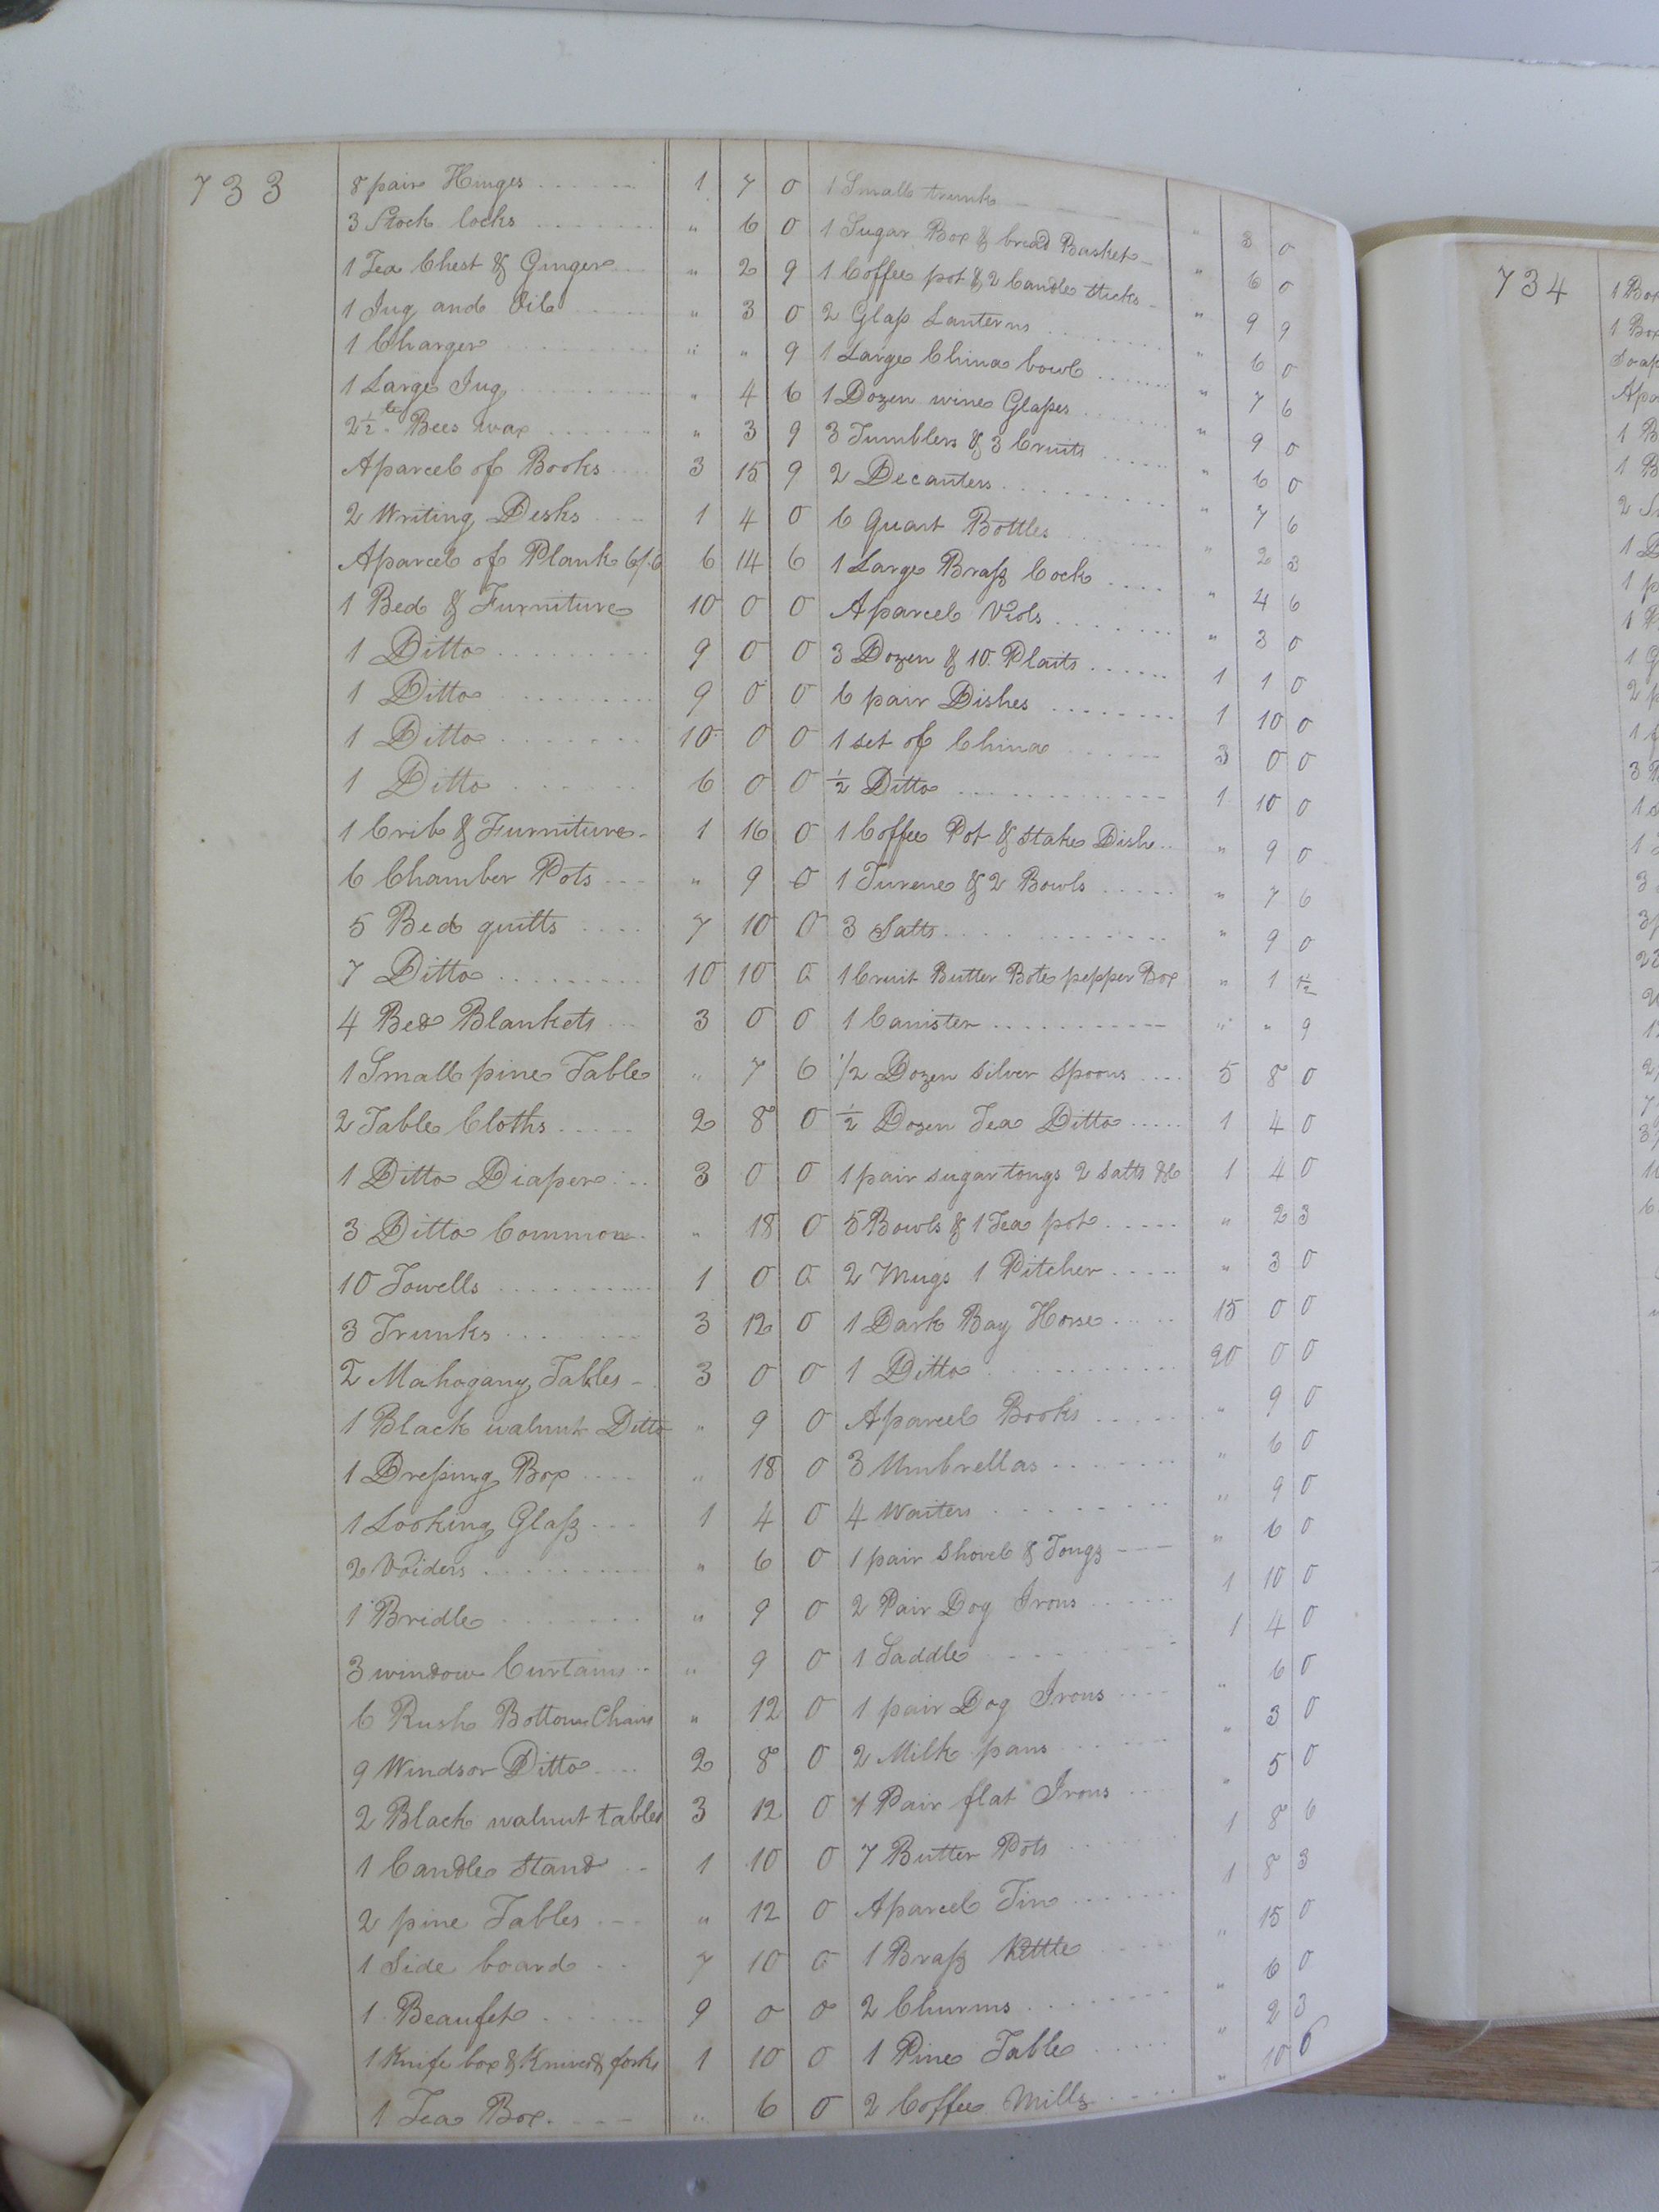 733
8 pair Hinges 1 7 0
3 Stock locks " 6 0
1 Tea Chest & Ginger " 2 9
1 Jug and Oil " 3 0
1 Charger " " 9
1 Large Jug " 4 6
2½ lb Bees wax " 3 9
Aparcel of Books 3 15 9
2 Writing Desks 1 4 0
Aparcel of Plank 6/.6 6 14 6
1 Bed & Furniture 10 0 0
1 Ditto 9 0 0
1 Ditto 9 0 0
1 Ditto 10 0 0
1 Ditto 6 0 0
1 Crib & Furniture 1 16 0
6 Chamber Pots " 9 0
5 Bed quilts 7 10 0
7 Ditto 10 10 0
4 Bed Blankets 3 0 0
1 Small pine Table " 7 6
2 Table Cloths 2 8 0
1 Ditto Diaper 3 0 0
3 Ditto Common " 18 0
10 Towells 1 0 0
3 Trunks 3 12 0
2 Mahogany Tables 3 0 0
1 Black walnut Ditto " 9 0
1 Dressing Box " 18 0
1 Looking Glass 1 4 0
2 Voiders " 6 0
1 Bridle " 9 0
3 window Curtains " 9 0
6 Rush Bottom Chairs " 12 0
9 Windsor Ditto 2 8 0
2 Black walnut tables 3 12 0
1 Candle Stand 1 10 0
2 pine Tables " 12 0
1 Side board 7 10 0
1 Beaufet 9 0 0
1 Knife box & Knives & forks 1 10 0
1 Tea Box " 6 0
1 Small trunk " 3 0
1 Sugar Box & bread Basket " 6 0
1 Coffee pot & 2 Candle sticks " 9 9
2 Glass Lanterns " 6 0
1 Large China bowl " 7 6
1 Dozen wine Glasses " 9 0
3 Tumblers & 3 Cruits " 6 0
2 Decanters " 7 6
6 Quart Bottles " 2 3
1 Large Brass Cock " 4 6
Aparcel Viols " 3 0
3 Dozen & 10 Plaits 1 1 0
6 pair Dishes 1 10 0
1 set of China 3 0 0
½ Ditto 1 10 0
1 Coffee Pot & stake Dish " 9 0
1 Turene & 2 Bowls " 7 6
3 Salts " 9 0
1 Cruit Butter Bote pepper Box " 1 ½
1 Canister " " 9
1/2 Dozen silver Spoons 5 8 0
½ Dozen Tea Ditto 1 4 0
1 pair sugar tongs 2 salts &c 1 4 0
5 Bowls & 1 Tea pot " 2 3
2 Mugs 1 Pitcher " 3 0
1 Dark Bay Horse 15 0 0
1 Ditto 20 0 0
Aparcel Books " 9 0
3 Umbrellas " 6 0
4 Waiters " 9 0
1 pair Shovel & Tongs " 6 0
2 Pair Dog Irons 1 10 0
1 Saddle 1 4 0
1 pair Dog Irons " 6 0
2 Milk pans " 3 0
1 Pair flat Irons " 5 0
7 Butter Pots 1 8 6
Aparcel Tin 1 8 3
1 Brass Kettle " 15 0
2 Churms " 6 0
1 Pine Table " 2 3
2 Coffee Mills " 10 6
734